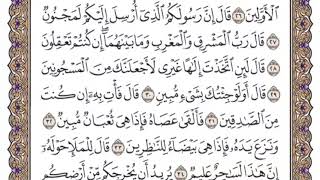 ٱلْأَوَّلِينَ ٢٦ قَالَ إِنَّ رَسُولَكُمُ ٱلَّذِىٓ أُرْسِلَ إِلَيْكُمْ لَمَجْنُونٌ
٢٧ قَالَ رَبُّ ٱلْمَشْرِقِ وَٱلْمَغْرِبِ وَمَا بَيْنَهُمَآ إِن كُنتُمْ تَعْقِلُونَ
٢٨ قَالَ لَئِنِ ٱتَّخَذْتَ إِلَٰهًا غَيْرِى لَأَجْعَلَنَّكَ مِنَ ٱلْمَسْجُونِينَ
٢٩ قَالَ أَوَلَوْ جِئْتُكَ بِشَىْءٍ مُّبِينٍ ٣٠ قَالَ فَأْتِ بِهِۦٓ إِن كُنتَ
مِنَ ٱلصَّٰدِقِينَ ٣١ فَأَلْقَىٰ عَصَاهُ فَإِذَا هِىَ ثُعْبَانٌ مُّبِينٌ ٣٢
وَنَزَعَ يَدَهُۥ فَإِذَا هِىَ بَيْضَآءُ لِلنَّٰظِرِينَ ٣٣ قَالَ لِلْمَلَإِ حَوْلَهُۥٓ
إِنَّ هَٰذَا لَسَٰحِرٌ عَلِيمٌ ٣٤ يُرِيدُ أَن يُخْرِجَكُم مِّنْ أَرْضِكُم